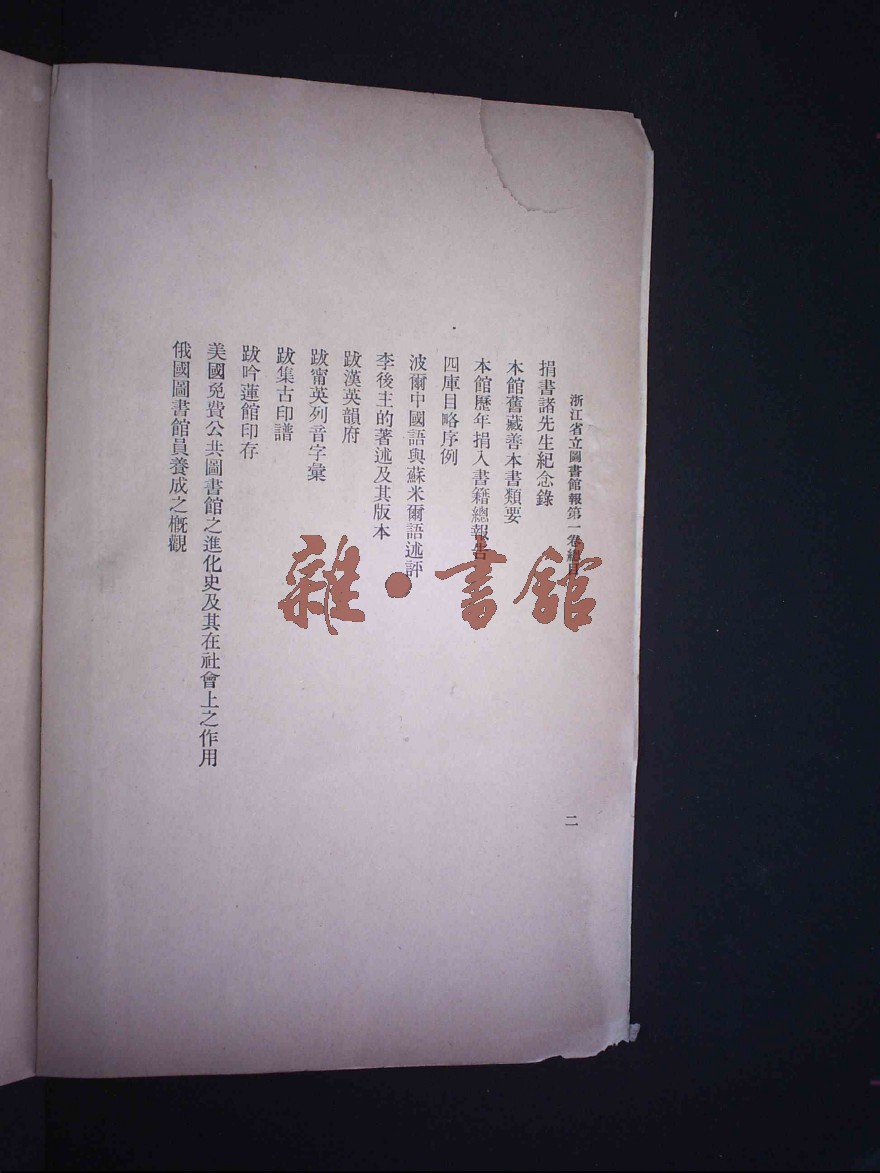 浙江省立圖書館報第一卷總目
二
捐書諸先生紀念錄
本館舊藏善本書類要
本館歷年捐入書籍總報告
四庫目略序例
波爾中國語與蘇米爾語述評
李後主的著述及其版本
跋漢英韻府
跋甯英列音字彙
跋集古印譜
跋吟蓮館印存
美國免費公共圖書館之進化史及其在社會上之作用
俄國圖書館員養成之概觀
雜·書館